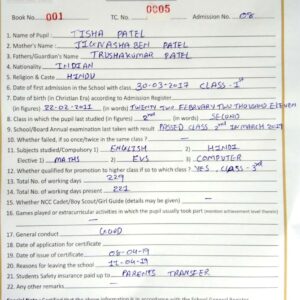 Book No. 001 TC. No. 0005 Admission No. 08
1. Name of Pupil : TISHA PATEL
2. Mother's Name : JIGNASHABEN PATEL
3. Fathers/Guardian's Name TRUSHARKUMAR PATEL
4. Nationality INDIAN
5. Religion & Caste HINDU
6. Date of first admission in the School with class 30-03-2017 CLASS - 1st
7. Date of birth (in Christian Era) according to Admission Register
(in figures) 22-02-2011 (in words) TWENTY TWO FEBRUARY TWO THOUSAND ELEVEN
8. Class in which the pupil last studied (in figures) 2nd (in words) SECOND
9. School/Board Annual examination last taken with result PASSED CLASS 2nd IN MARCH 2019
10. Whether failed, if so once/twice in the same class? —
11. Subjects studied/Compulsory 1 ENGLISH 2 HINDI
Elective 1) MATHS 2 EVS 3 COMPUTER
12. Whether qualified for promotion to higher class if so to which class? YES, CLASS - 3rd
13. Total No. of working days 229
14. Total No. of working days present 221
15. Whether NCC Cadet/Boy Scout/Girl Guide (details may be given) —
16. Games played or extracurricular activities in which the pupil usually took part (mention achievement level therein)
17. General conduct GOOD
18. Date of application for certificate
19. Date of issue of certificate 06-04-19
20. Reasons for leaving the school 11-04-19
21. Students Safety insurance paid up to PARENTS TRANSFER
22. Any other remarks —